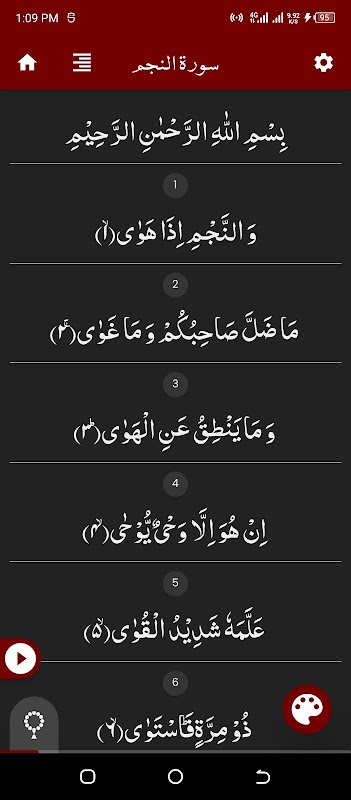 1:09 PM
4G
9.92 K/S
95
سورة النجم
بِسْمِ اللّٰهِ الرَّحْمٰنِ الرَّحِیْمِ
1
وَ النَّجْمِ اِذَا هَوٰىۙ(۱)
2
مَا ضَلَّ صَاحِبُكُمْ وَ مَا غَوٰىۚ(۲)
3
وَ مَا یَنْطِقُ عَنِ الْهَوٰىؕ(۳)
4
اِنْ هُوَ اِلَّا وَحْیٌ یُّوْحٰىۙ(۴)
5
عَلَّمَهٗ شَدِیْدُ الْقُوٰىۙ(۵)
6
ذُوْ مِرَّةٍؕ-فَاسْتَوٰىۙ(۶)